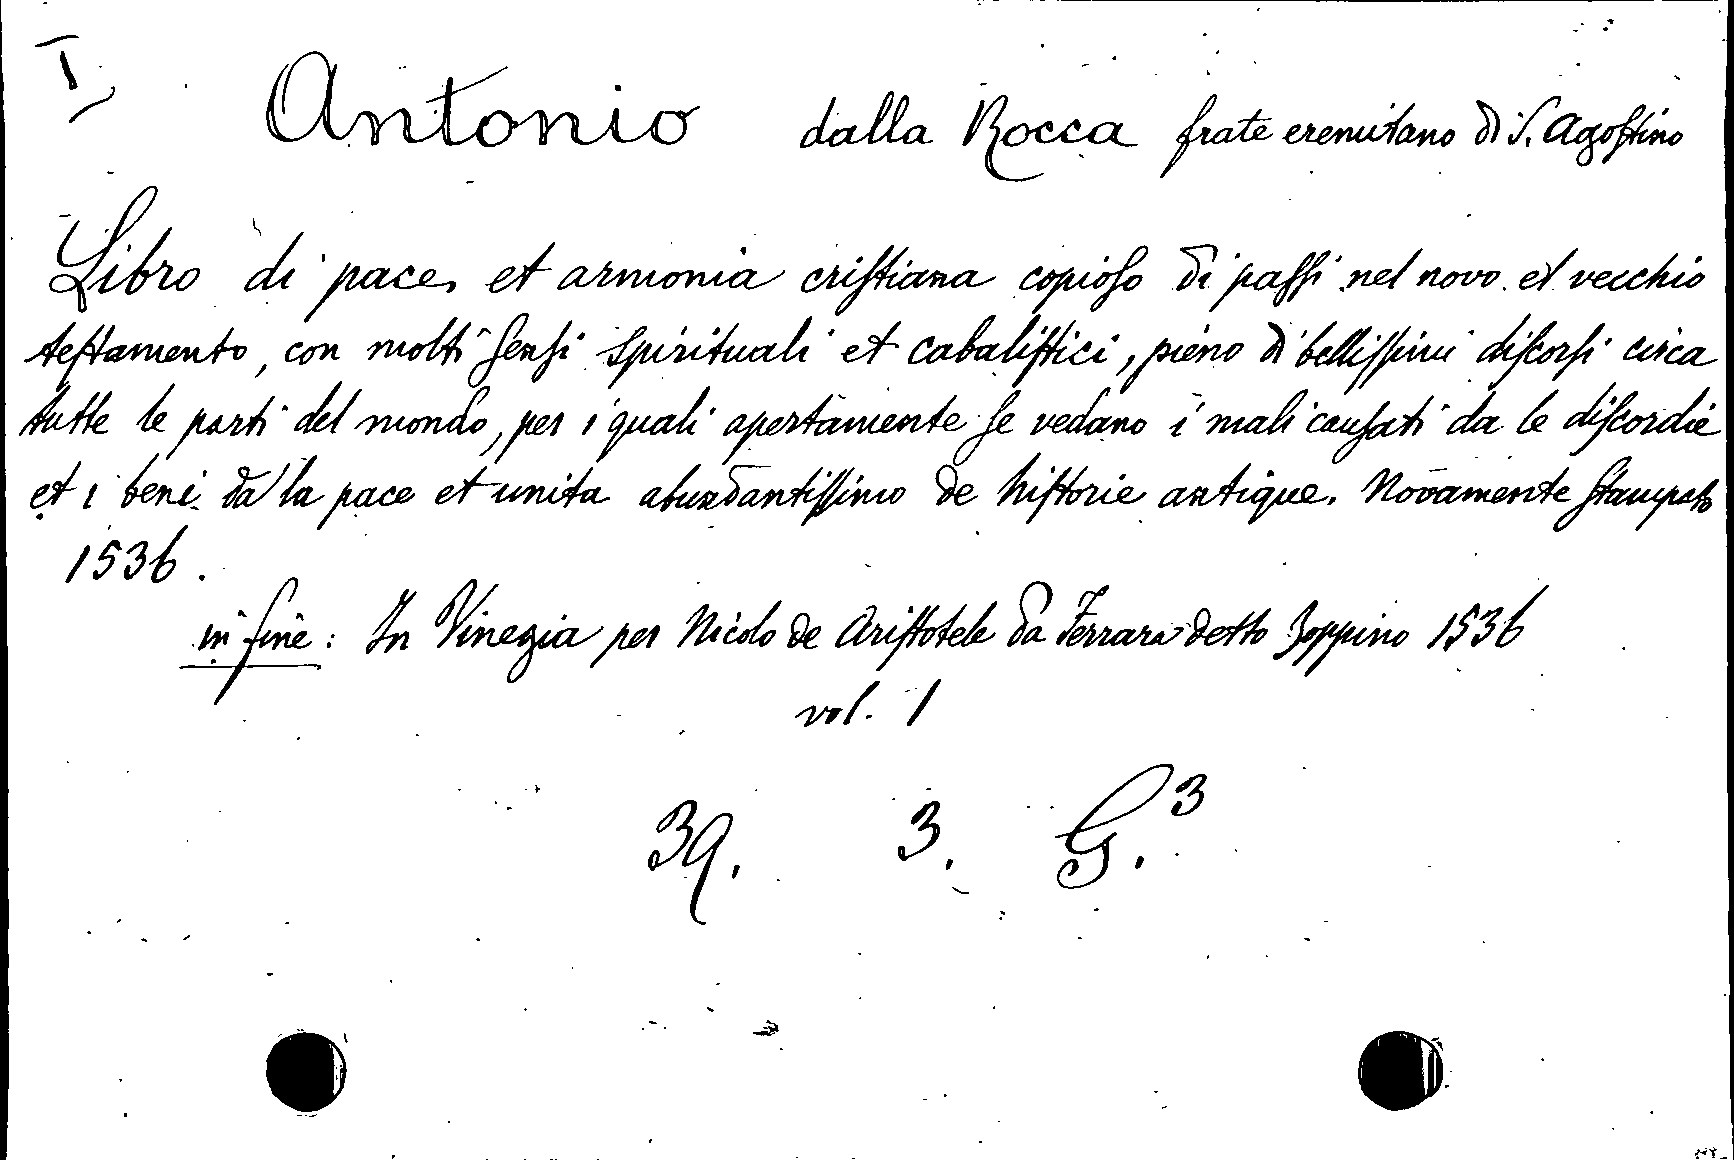 I
Antonio dalla Rocca frate eremitano di S. Agoſtino
Libro di pace et armonia criſtiana copioſo di paſſi nel novo et vecchio
teſtamento, con molti ſenſi spirituali et cabaliſtici, pieno di belliſſimi diſcorſi circa
tutte le parti del mondo, per i quali apertamente ſe vedano i mali cauſati da le diſcordie
et i beni da la pace et unita abundantiſſimo de hiſtorie antique. Novamente ſtampato
1536.
in fine: In Vinegia per Nicolo de Ariſtotele da Ferrara detto Zoppino 1536
vol. 1
39. 3. G.3